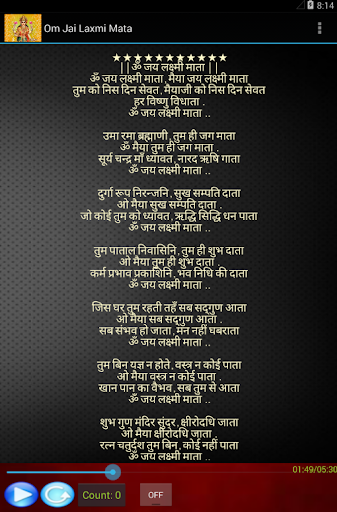 8:14
Om Jai Laxmi Mata
★★★★★★★★★★★
||ॐ जय लक्ष्मी माता||
ॐ जय लक्ष्मी माता, मैया जय लक्ष्मी माता
तुम को निस दिन सेवत, मैयाजी को निस दिन सेवत
हर विष्णु विधाता .
ॐ जय लक्ष्मी माता ..
उमा रमा ब्रह्माणी, तुम ही जग माता
ॐ मैया तुम ही जग माता .
सूर्य चन्द्र माँ ध्यावत, नारद ऋषि गाता
ॐ जय लक्ष्मी माता ..
दुर्गा रूप निरन्जनि, सुख सम्पति दाता
ओ मैया सुख सम्पति दाता .
जो कोई तुम को ध्यावत, ऋद्धि सिद्धि धन पाता
ॐ जय लक्ष्मी माता ..
तुम पाताल निवासिनि, तुम ही शुभ दाता
ओ मैया तुम ही शुभ दाता .
कर्म प्रभाव प्रकाशिनि, भव निधि की दाता
ॐ जय लक्ष्मी माता ..
जिस घर तुम रहती तहँ सब सद्गुण आता
ओ मैया सब सद्गुण आता .
सब संभव हो जाता, मन नहीं घबराता
ॐ जय लक्ष्मी माता ..
तुम बिन यज्ञ न होते, वस्त्र न कोई पाता
ओ मैया वस्त्र न कोई पाता .
खान पान का वैभव, सब तुम से आता
ॐ जय लक्ष्मी माता ..
शुभ गुण मंदिर सुंदर, क्षीरोदधि जाता
ओ मैया क्षीरोदधि जाता .
रत्न चतुर्दश तुम बिन, कोई नहीं पाता
ॐ जय लक्ष्मी माता ..
01:49/05:30
Count: 0
OFF